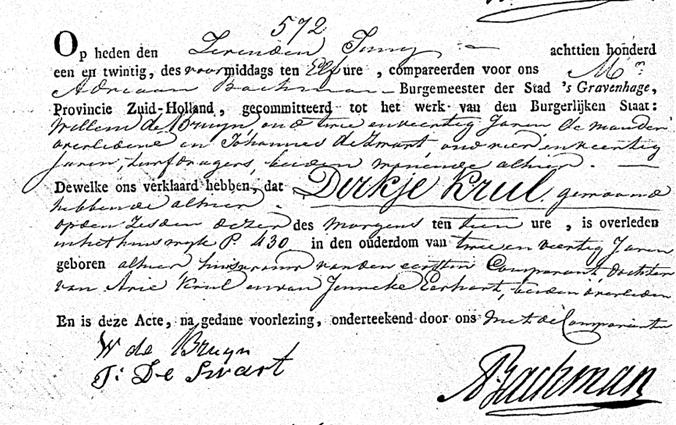 572
Op heden den Zevenden Juny achttien honderd
een en twintig, des voormiddags ten Elf ure, compareerden voor ons Mr.
Adriaan Bachman Burgemeester der Stad 's Gravenhage,
Provincie Zuid-Holland, gecommitteerd tot het werk van den Burgerlijken Staat:
Willem de Bruyn, oud twee en veertig Jaren de man der
overledene en Johannes de Zwart, oud vier en veertig
Jaren, turfdragers, beiden wonende alhier.
Dewelke ons verklaard hebben, dat Dirkje Krul gewoond
hebbende alhier
op den Zesden dezer des Morgens ten tien ure, is overleden
in het huis wyk P. 430 in den ouderdom van twee en veertig Jaren
geboren alhier, huisvrouw van den eersten Comparant, dochter
van Arie Krul en van Jenneke, beiden overleden
En is deze Acte, na gedane voorlezing, onderteekend door ons met de Comparanten
W de Bruyn
J: De Swart
A Bachman